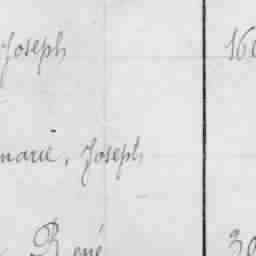 Joseph 16
marie, Joseph
René 30